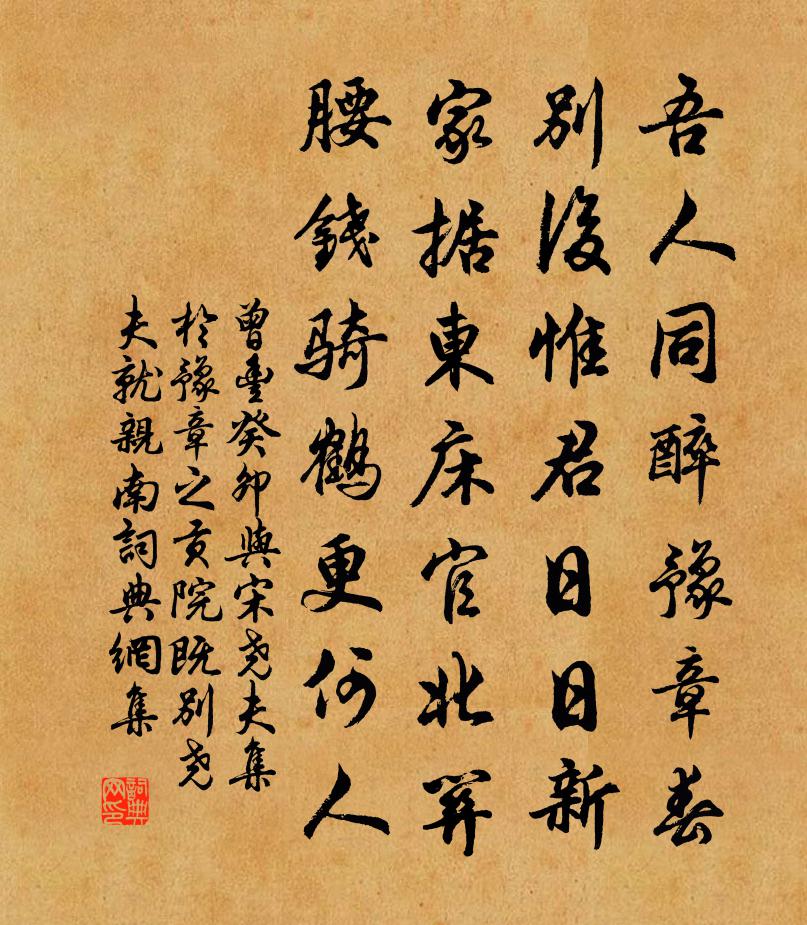 吾人同醉豫章春
別後惟君日日新
家据東床官北
腰錢騎鶴更何人
曾豐癸卯與宋堯夫集
於豫章之貢院既別堯
夫就親南詞典網集
詞典
网印